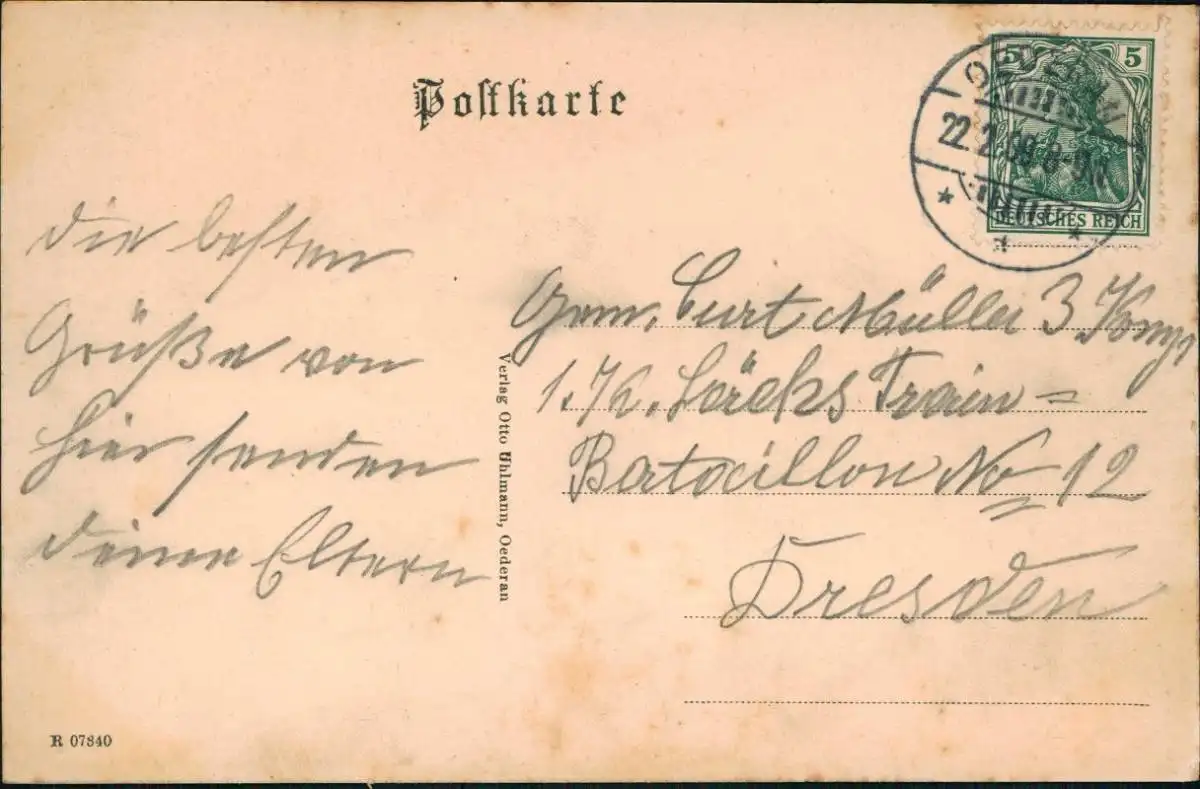 Postkarte
5 5
DEUTSCHES REICH
OEDERAN
22.2.09.8-9V
die besten
Grüße von
hier senden
deine Eltern
Verlag Otto Uhlmann, Oederan
Gem. Curt Müller 3 Komp
1. K. Säcks Train=
Batacillon No 12
Dresden
R 07840